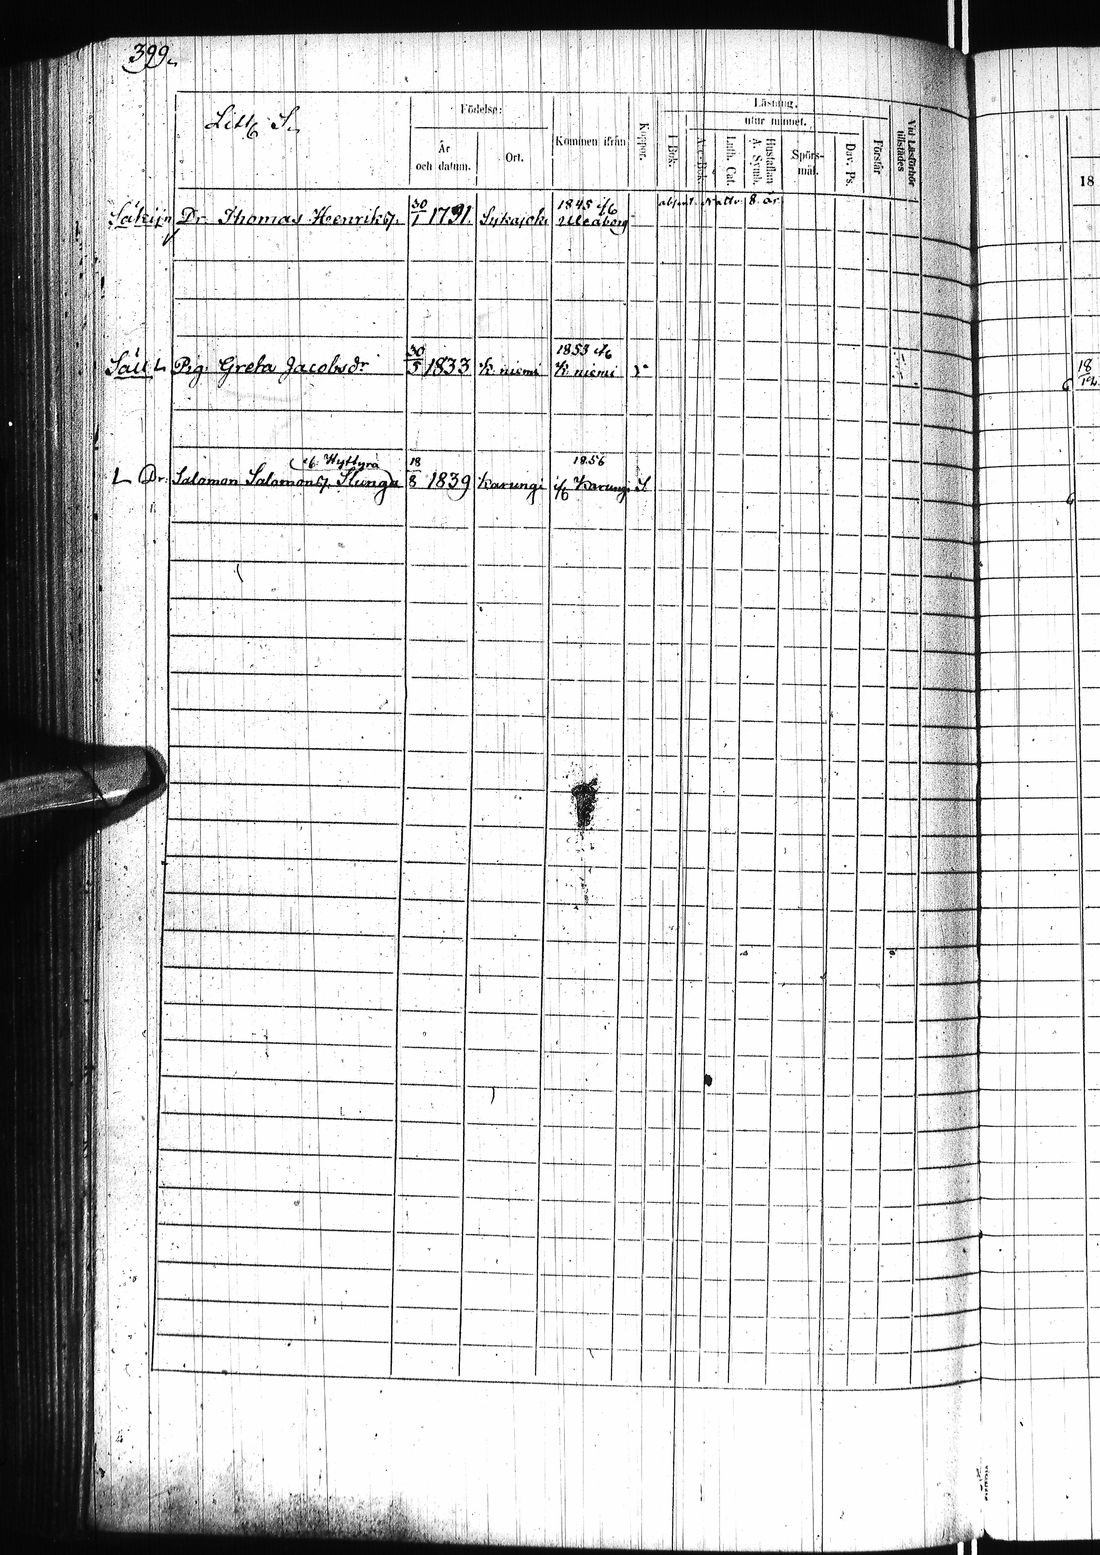 399.
Litt. S.
Födelse:
År
och datum.
Ort.
Kommen ifrån
Koppor.
Läsning,
utur minnet.
I Bok.
A.c.-Bok.
Luth. Cat.
Hustaflan
A. Symb.
Spörs-
mål.
Dav. Ps.
Förstår
Vid Läsförhör
tillstädes
18
Säkijn Dr. Thomas Henriks. 30/1 1791. Sykajoki 1845 i/6 Uleaborg absent. Nattv. 8. år.
Säit L Pig. Greta Jacobsdr 30/5 1833 K. niemi 1853 i/6 K. niemi v
18
12
6. Hyttyrä
L Dr. Salomon Salomons. Slunga 18/8 1839 Karungi 1856 i/6 Karungi S